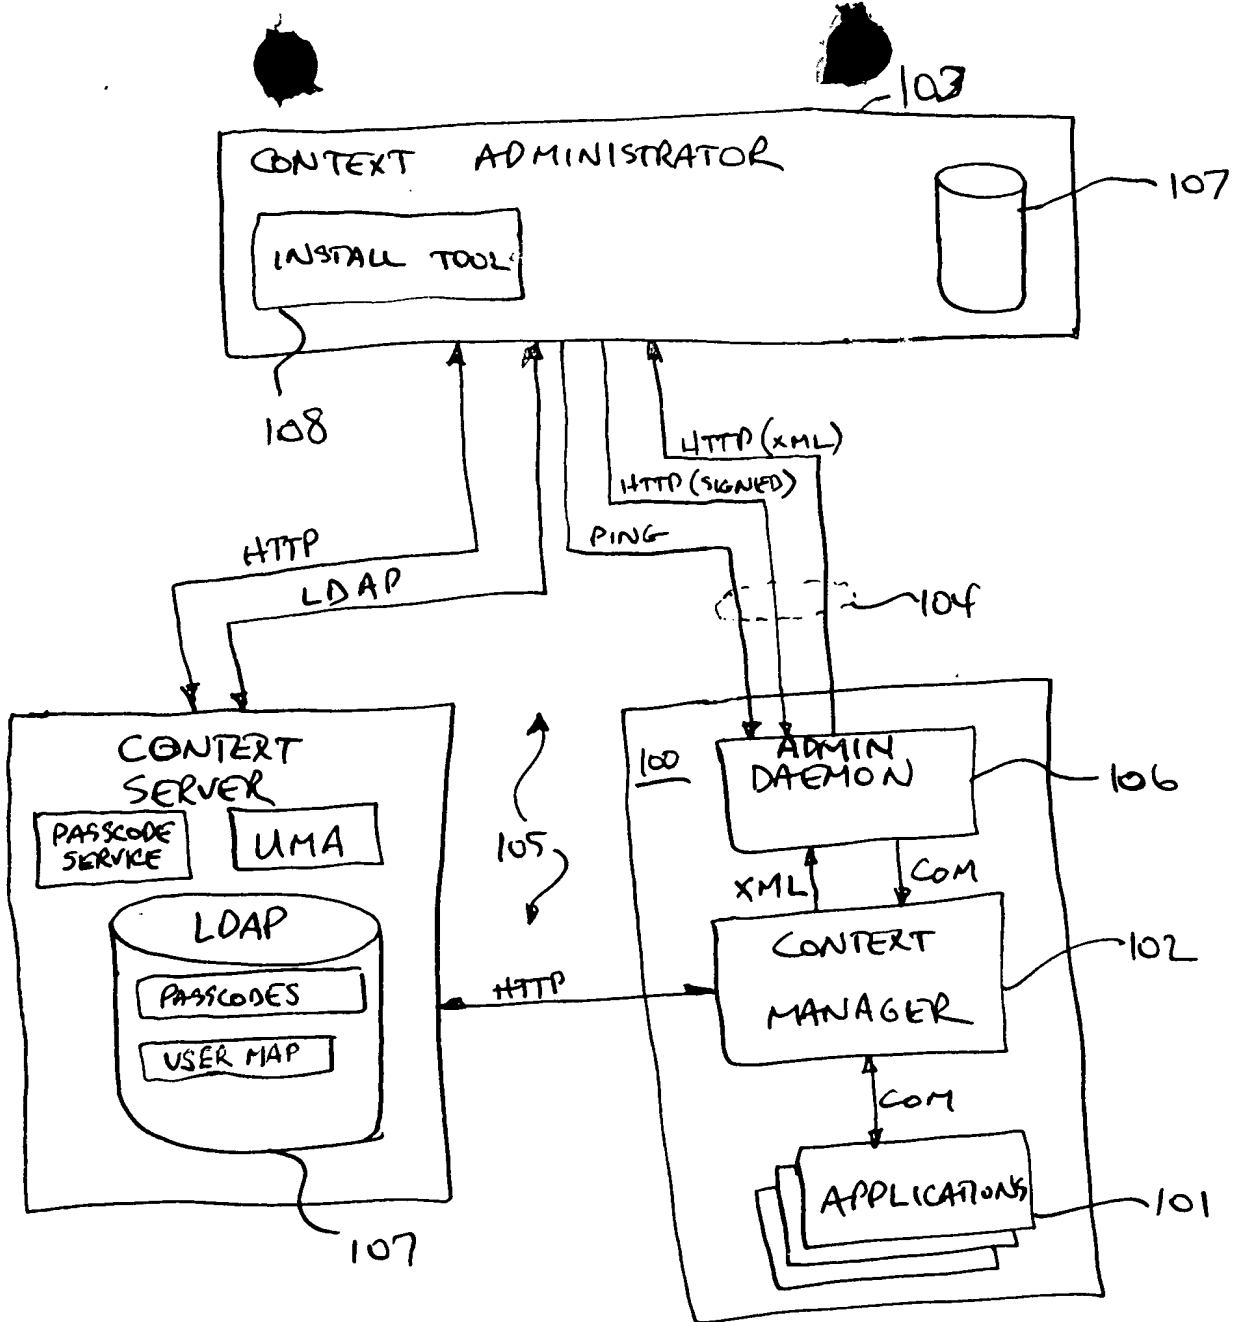 103
CONTEXT ADMINISTRATOR
107
INSTALL TOOL
108
HTTP (XML)
HTTP (SIGNED)
PING
HTTP
LDAP
104
CONTEXT
SERVER
PASSCODE
SERVICE
UMA
LDAP
PASSCODES
USER MAP
107
105
HTTP
100
ADMIN
DAEMON
106
XML
COM
CONTEXT
MANAGER
102
COM
APPLICATIONS
101